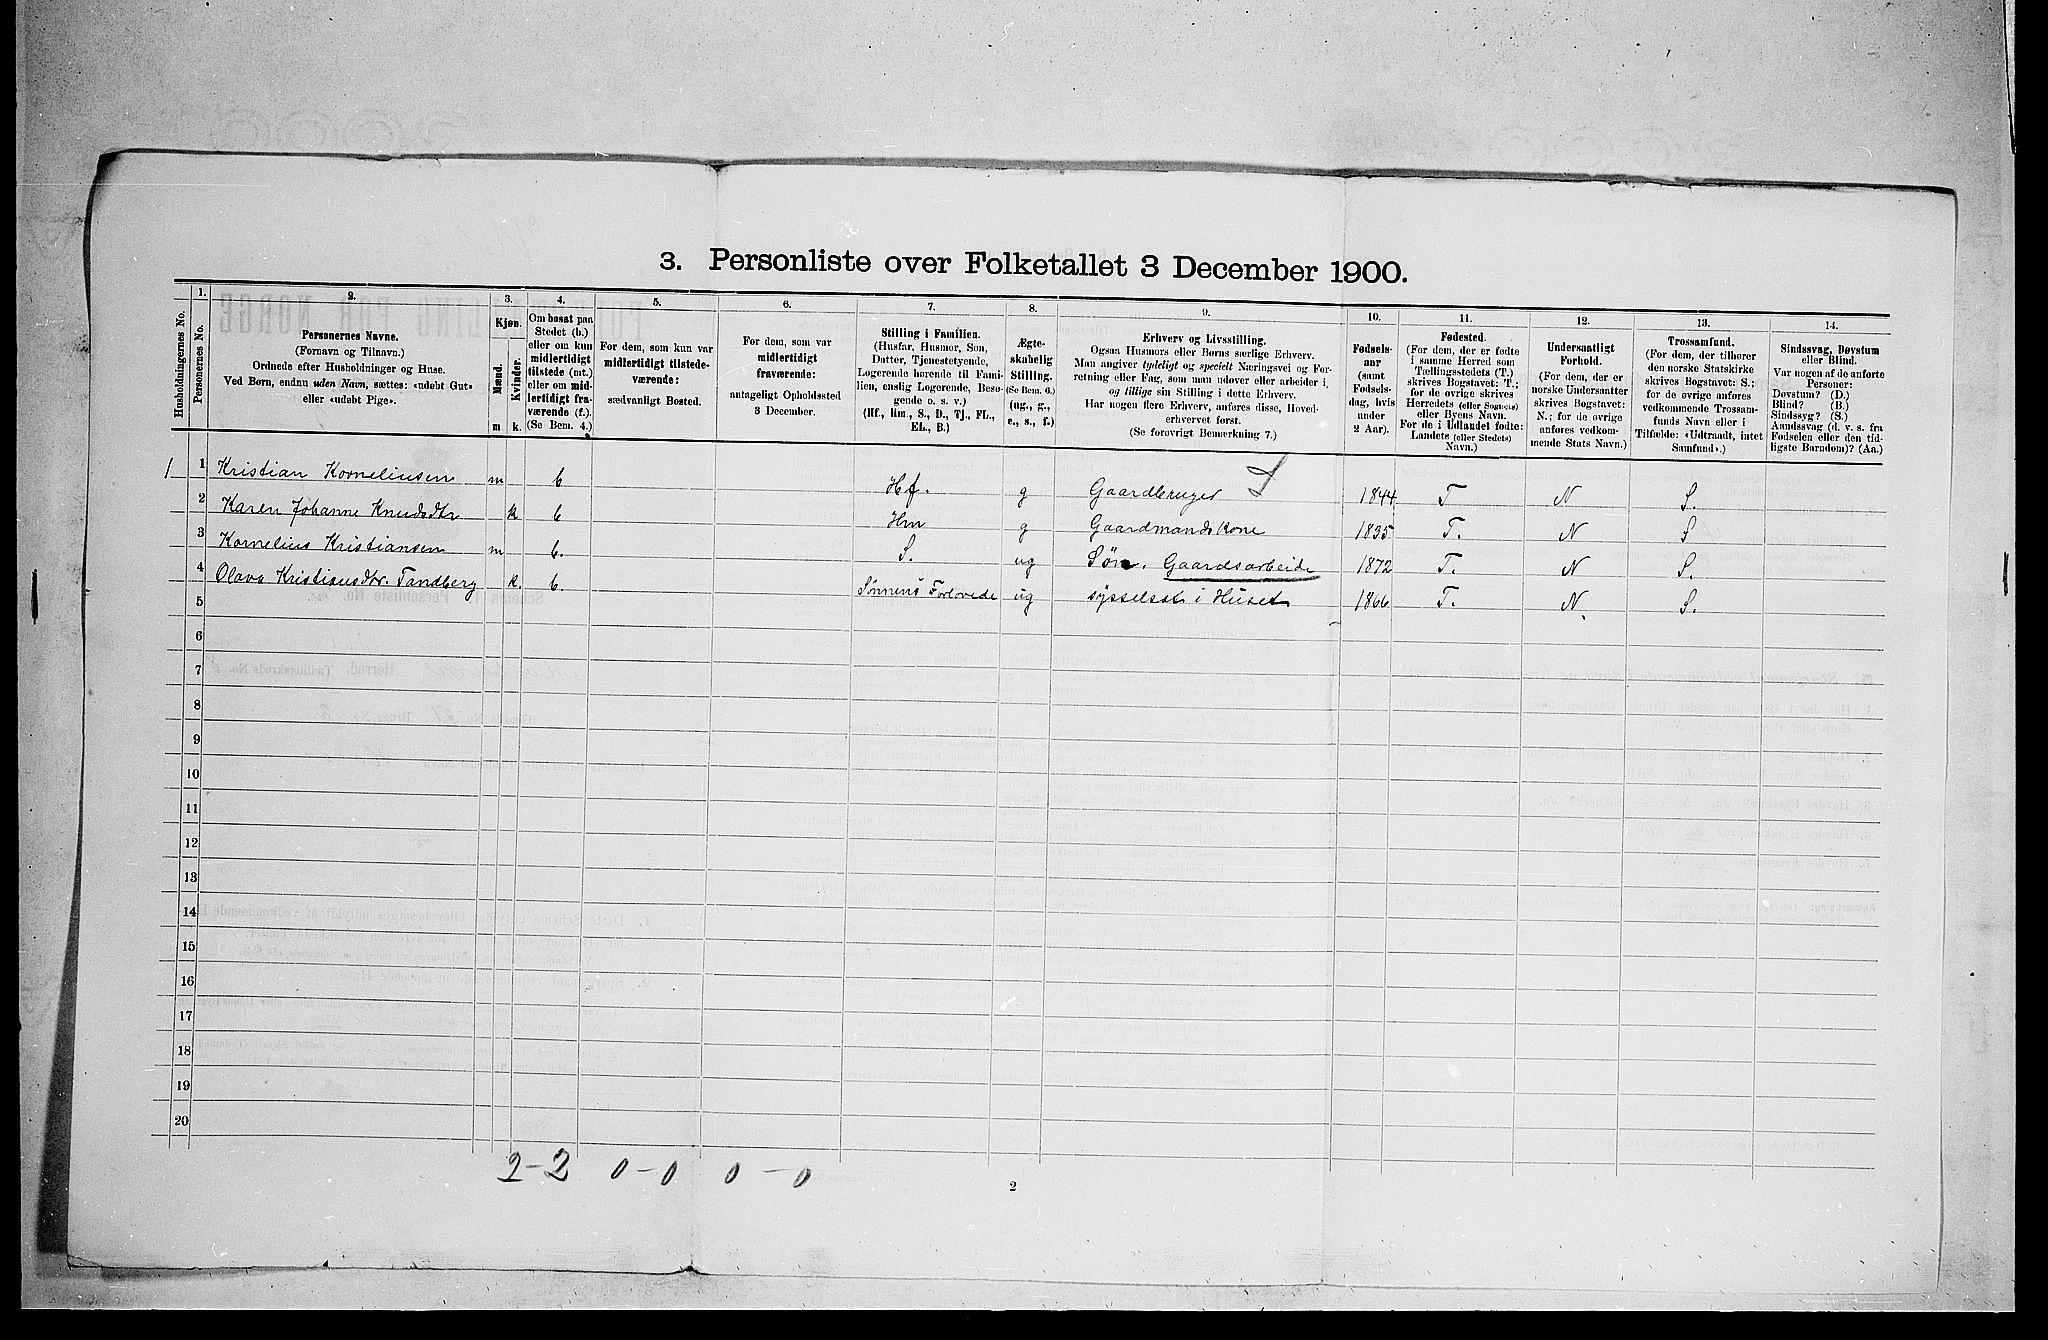 3. Personliste over Folketallet 3 December 1900.
Husholdningernes No.
1.
Personernes No.
2.
Personernes Navne.
(Fornavn og Tilnavn.)
Ordnede efter Husholdninger og Huse.
Ved Børn, endnu uden Navn, sættes: «udøbt Gut»
eller «udøbt Pige».
3.
Kjøn.
Mænd.
Kvinder.
m k.
4.
Om bosat paa
Stedet (b.)
eller om kun
midlertidigt
tilstede (mt.)
eller om mid-
lertidigt fra-
værende (f.).
(Se Bem. 4.)
5.
For dem, som kun var
midlertidigt tilstede-
værende:
sædvanligt Bosted.
6.
For dem, som var
midlertidigt
fraværende:
antageligt Opholdssted
3 December.
7.
Stilling i Familien.
(Husfar, Husmor, Søn,
Datter, Tjenestetyende,
Logerende hørende til Fami-
lien, enslig Logerende, Besø-
gende o. s. v.)
(Hf., hm., S., D., Tj., FL.,
EL., B.)
8.
Ægte-
skabelig
Stilling.
(Se Bem. 6.)
(ug., g.,
e., s., f.)
9.
Erhverv og Livsstilling.
Ogsaa Husmors eller Børns særlige Erhverv.
Man angiver tydeligt og specielt Næringsvei og For-
retning eller Fag, som man udøver eller arbeider i,
og tillige sin Stilling i dette Erhverv.
Har nogen flere Erhverv, anføres disse, Hoved-
erhvervet først.
(Se forøvrigt Bemærkning 7.)
10.
Fødsels-
aar
(samt
Fødsels-
dag, hvis
under
2 Aar).
11.
Fødested.
(For dem, der er fødte
i samme Herred som
Tællingsstedets (T.)
skrives Bogstavet: T.;
for de øvrige skrives
Herredets (eller Sognets)
eller Byens Navn.
For de i Udlandet fødte:
Landets (eller Stedets)
Navn.)
12.
Undersaatligt
Forhold.
(For dem, der er
norske Undersaatter
skrives Bogstavet:
N.; for de øvrige
anføres vedkom-
mende Stats Navn.)
13.
Trossamfund.
(For dem, der tilhører
den norske Statskirke
skrives Bogstavet: S.;
for de øvrige anføres
vedkommende Trossam-
funds Navn eller i
Tilfælde: «Udtraadt, intet
Samfund».)
14.
Sindssvag, Døvstum
eller Blind.
Var nogen af de anførte
Personer:
Døvstum? (D.)
Blind? (B.)
Sindssyg? (S.)
Aandssvag (d. v. s. fra
Fødselen eller den tid-
ligste Barndom)? (Aa.)
1 1 Kristian Korneliusen m b Hf. g Gaardbruger 1844 T N S.
2 Karen Johanne Knudsdtr k b Hm g Gaardmandskone 1835 T. N S
3 Kornelius Kristiansen m b. S. ug Søn. Gaardsarbeide 1872 T. N S.
4 Olava Kristiansdtr. Tandberg k. b. Sønnens Forlovede ug sysselsat i Huset 1866 T. N. S.
5
6
7
8
9
10
11
12
13
14
15
16
17
18
19
20
2-2 0-0 0-0
2